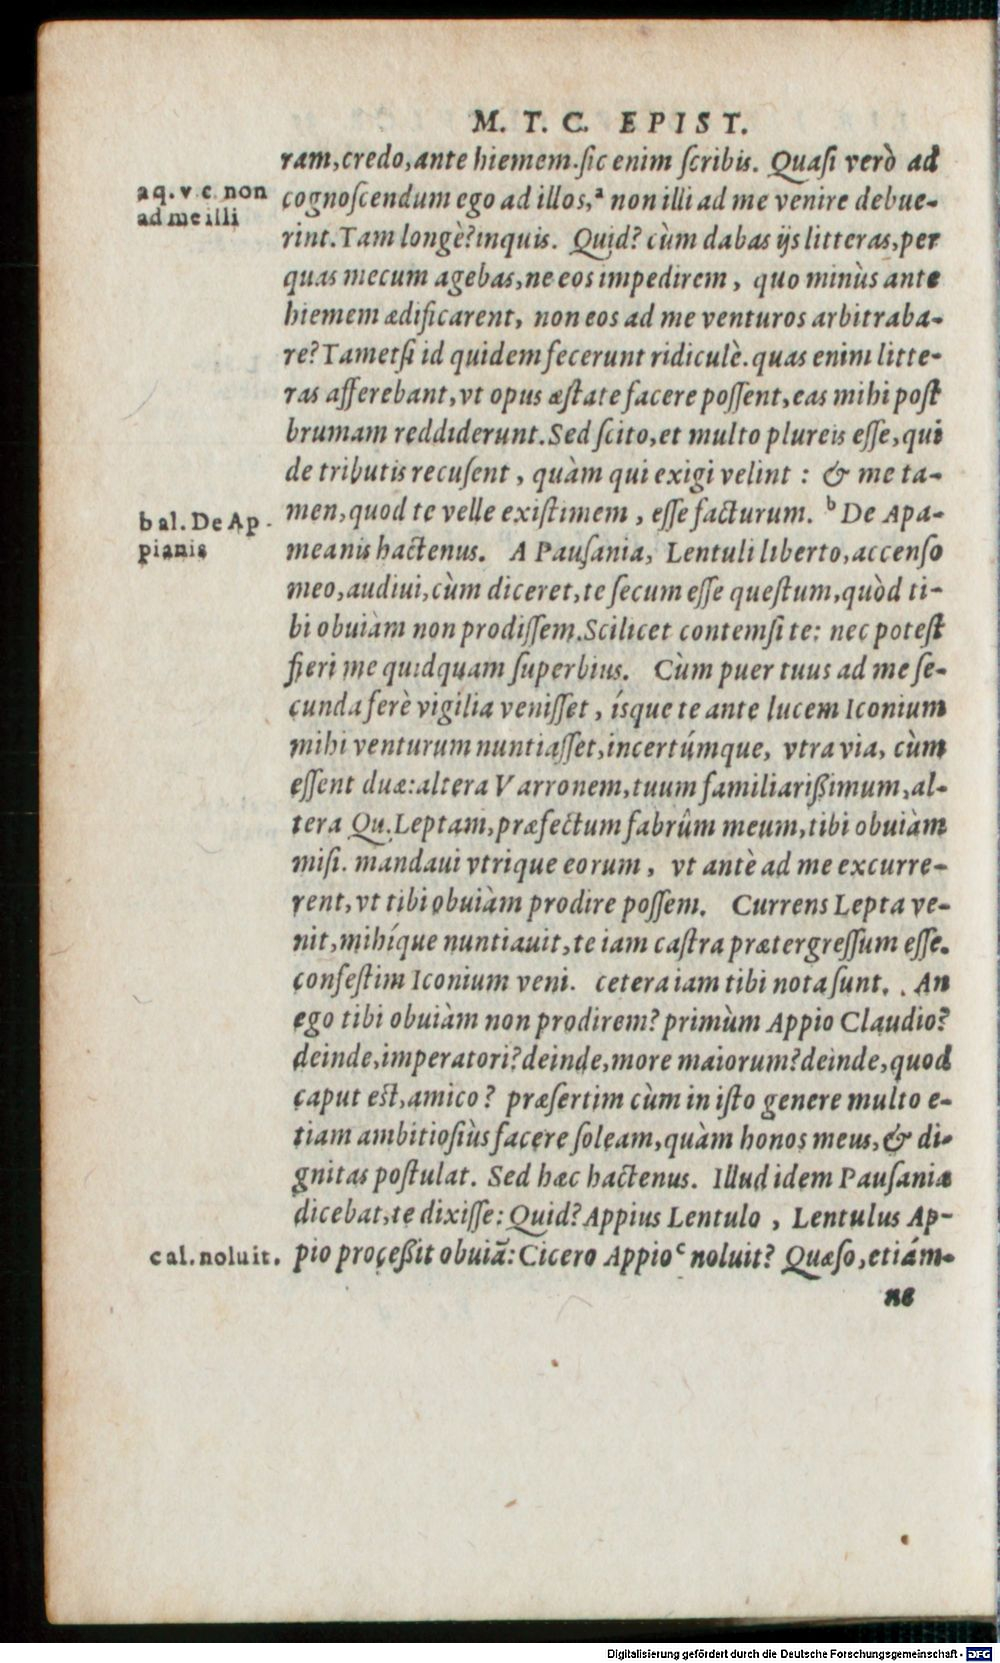 M. T. C. EPIST.
ram, credo, ante hiemem. sic enim scribis. Quasi verò ad
aq. v c non
ad me illi
cognoscendum ego ad illos, ᵃ non illi ad me venire debue-
rint. Tam longè? inquis. Quid? cùm dabas ijs litteras, per
quas mecum agebas, ne eos impedirem, quo minùs ante
hiemem ædificarent, non eos ad me venturos arbitraba-
re? Tametsi id quidem fecerunt ridiculè. quas enim litte-
ras afferebant, vt opus æstate facere possent, eas mihi post
brumam reddiderunt. Sed scito, et multo plureis esse, qui
de tributis recusent, quàm qui exigi velint: & me ta-
b al. De Ap-
pianis
men, quod te velle existimem, esse facturum. ᵇ De Apa-
meanis hactenus. A Pausania, Lentuli liberto, accenso
meo, audiui, cùm diceret, te secum esse questum, quòd ti-
bi obuiàm non prodissem. Scilicet contemsi te: nec potest
fieri me quidquam superbius. Cùm puer tuus ad me se-
cunda ferè vigilia venisset, ísque te ante lucem Iconium
mihi venturum nuntiasset, incertúmque, vtra via, cùm
essent duæ: altera Varronem, tuum familiarißimum, al-
tera Qu. Leptam, præfectum fabrûm meum, tibi obuiàm
misi. mandaui vtrique eorum, vt antè ad me excurre-
rent, vt tibi obuiàm prodire possem. Currens Lepta ve-
nit, mihíque nuntiauit, te iam castra prætergressum esse.
confestim Iconium veni. cetera iam tibi nota sunt. An
ego tibi obuiàm non prodirem? primùm Appio Claudio?
deinde, imperatori? deinde, more maiorum? deinde, quod
caput est, amico? præsertim cùm in isto genere multo e-
tiam ambitiosiùs facere soleam, quàm honos meus, & di-
gnitas postulat. Sed hæc hactenus. Illud idem Pausania
dicebat, te dixisse: Quid? Appius Lentulo, Lentulus Ap-
c al. noluit.
pio proceßit obuiã: Cicero Appio ᶜ noluit? Quæso, etiám-
ne
Digitalisierung gefördert durch die Deutsche Forschungsgemeinschaft - DFG